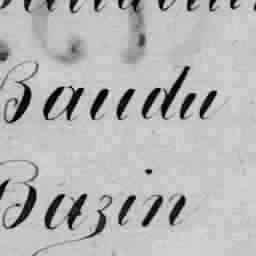 Baudu
Bazin